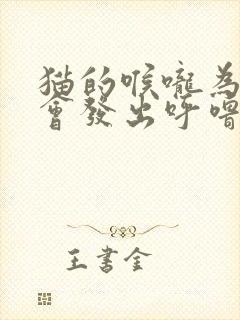 猫的喉嚨為
會發出呼嚕
王書金